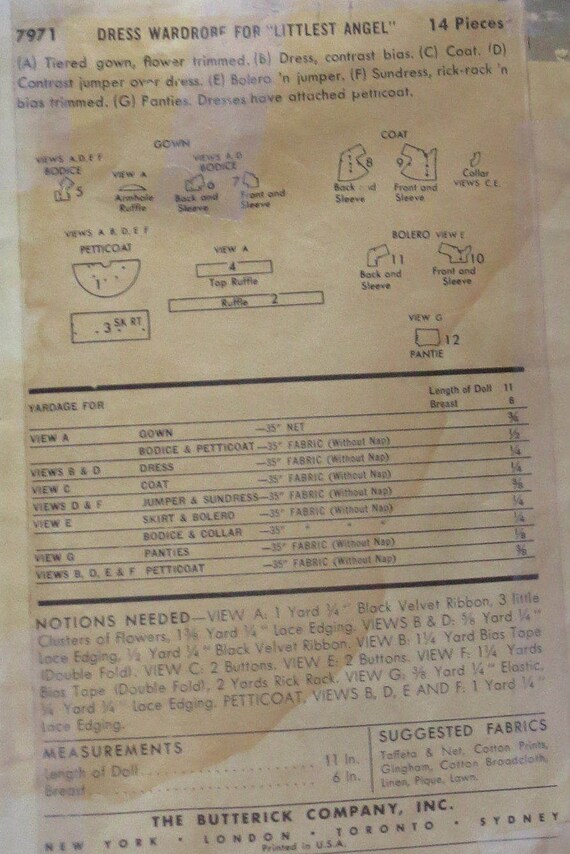 7971 DRESS WARDROBE FOR "LITTLEST ANGEL" 14 Pieces
(A) Tiered gown, flower trimmed. (B) Dress, contrast bias. (C) Coat. (D)
Contrast jumper over dress. (E) Bolero 'n jumper. (F) Sundress, rick-rack 'n
bias trimmed. (G) Panties. Dresses have attached petticoat.
GOWN
VIEWS A, D, E F
BODICE
5
VIEW A
Armhole
Ruffle
VIEWS B, D
BODICE
6
Back and
Sleeve
7
Front and
Sleeve
COAT
8
Back and
Sleeve
9
Front and
Sleeve
Collar
VIEWS C, E.
VIEWS A, B, D, E, F
PETTICOAT
1
3 SKIRT
VIEW A
4
Top Ruffle
Ruffle 2
BOLERO VIEW E
11
Back and
Sleeve
10
Front and
Sleeve
VIEW G
12
PANTIE
YARDAGE FOR Length of Doll 11
Breast 6
VIEW A GOWN —35" NET ¾
BODICE & PETTICOAT —35" FABRIC (Without Nap) ½
VIEWS B & D DRESS —35" FABRIC (Without Nap) ¼
VIEW C COAT —35" FABRIC (Without Nap) ¼
VIEWS D & F JUMPER & SUNDRESS —35" FABRIC (Without Nap) ⅜
VIEW E SKIRT & BOLERO —35" FABRIC (Without Nap) ¼
BODICE & COLLAR —35" " " " ¼
VIEW G PANTIES —35" FABRIC (Without Nap) ⅛
VIEWS B, D, E & F PETTICOAT —35" FABRIC (Without Nap) ⅜
NOTIONS NEEDED—VIEW A: 1 Yard ¼" Black Velvet Ribbon, 3 little
Clusters of Flowers, 1⅜ Yard ¼" Lace Edging. VIEWS B & D: ⅝ Yard ¼"
Lace Edging, ½ Yard ¼" Black Velvet Ribbon. VIEW B: 1¼ Yard Bias Tape
(Double Fold). VIEW C: 2 Buttons. VIEW E: 2 Buttons. VIEW F: 1¼ Yards
Bias Tape (Double Fold), 2 Yards Rick Rack. VIEW G: ⅜ Yard ¼" Elastic,
¼ Yard ¼" Lace Edging. PETTICOAT, VIEWS B, D, E AND F: 1 Yard ¼"
Lace Edging.
MEASUREMENTS
Length of Doll 11 In.
Breast 6 In.
SUGGESTED FABRICS
Taffeta & Net, Cotton Prints,
Gingham, Cotton Broadcloth,
Linen, Pique, Lawn.
THE BUTTERICK COMPANY, INC.
NEW YORK • LONDON • TORONTO • SYDNEY
Printed in U.S.A.